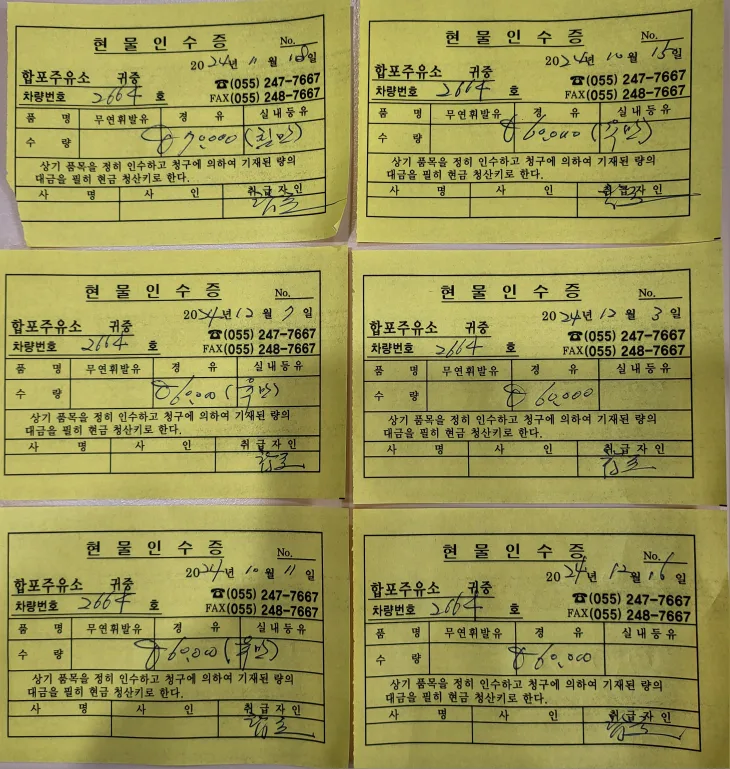 현 물 인 수 증 No.
2024년 11월 18일
합포주유소 귀중
☎(055) 247-7667
차량번호 2664 호 FAX(055) 248-7667
품 명 무연휘발유 경 유 실내등유
수 량 70,000 (칠만)
상기 품목을 정히 인수하고 청구에 의하여 기재된 량의
대금을 필히 현금 청산키로 한다.
사 명 사 인 취급자인
현 물 인 수 증 No.
2024년 10월 15일
합포주유소 귀중
☎(055) 247-7667
차량번호 2664 호 FAX(055) 248-7667
품 명 무연휘발유 경 유 실내등유
수 량 60,000 (육만)
상기 품목을 정히 인수하고 청구에 의하여 기재된 량의
대금을 필히 현금 청산키로 한다.
사 명 사 인 취급자인
현 물 인 수 증 No.
2024년 12월 7일
합포주유소 귀중
☎(055) 247-7667
차량번호 2664 호 FAX(055) 248-7667
품 명 무연휘발유 경 유 실내등유
수 량 60,000 (육만)
상기 품목을 정히 인수하고 청구에 의하여 기재된 량의
대금을 필히 현금 청산키로 한다.
사 명 사 인 취급자인
현 물 인 수 증 No.
2024년 12월 3일
합포주유소 귀중
☎(055) 247-7667
차량번호 2664 호 FAX(055) 248-7667
품 명 무연휘발유 경 유 실내등유
수 량 60,000
상기 품목을 정히 인수하고 청구에 의하여 기재된 량의
대금을 필히 현금 청산키로 한다.
사 명 사 인 취급자인
현 물 인 수 증 No.
2024년 10월 11일
합포주유소 귀중
☎(055) 247-7667
차량번호 2664 호 FAX(055) 248-7667
품 명 무연휘발유 경 유 실내등유
수 량 60,000 (육만)
상기 품목을 정히 인수하고 청구에 의하여 기재된 량의
대금을 필히 현금 청산키로 한다.
사 명 사 인 취급자인
현 물 인 수 증 No.
2024년 12월 16일
합포주유소 귀중
☎(055) 247-7667
차량번호 2664 호 FAX(055) 248-7667
품 명 무연휘발유 경 유 실내등유
수 량 60,000
상기 품목을 정히 인수하고 청구에 의하여 기재된 량의
대금을 필히 현금 청산키로 한다.
사 명 사 인 취급자인